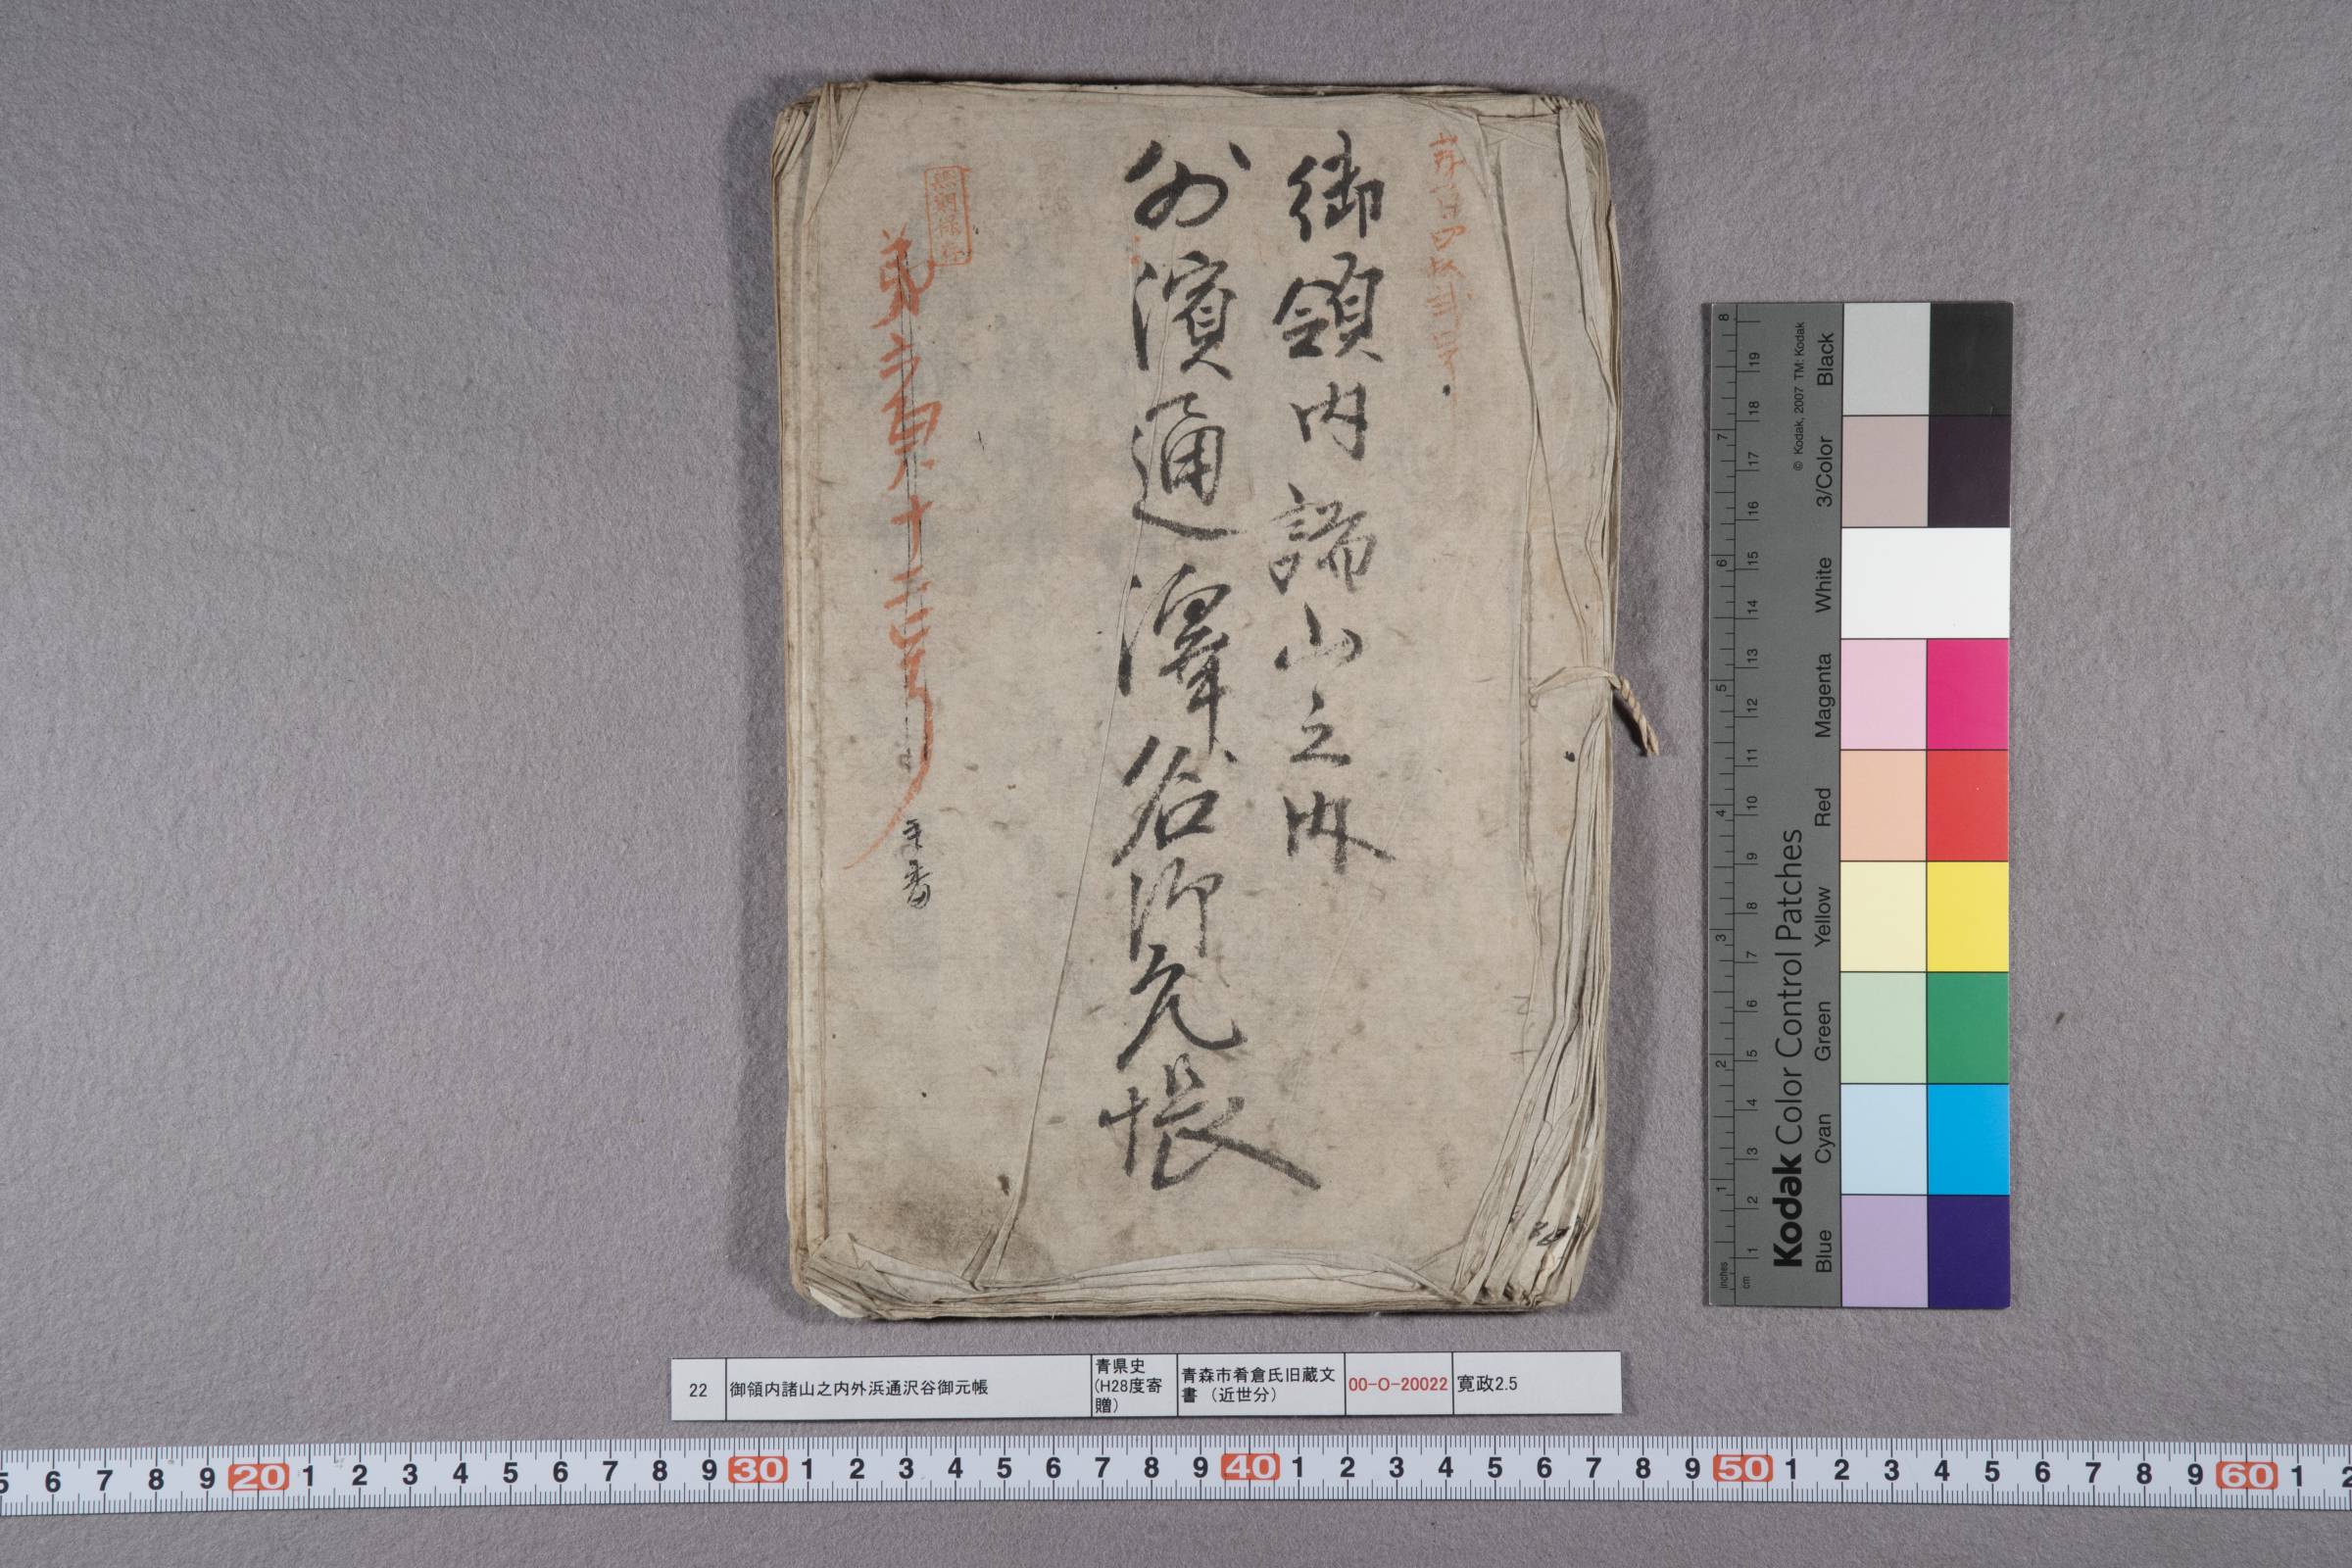 御領内諸山之内
外濱通澤谷御元帳
無期保存
22
御領内諸山之内外浜通沢谷御元帳
青県史
(H28度寄
贈)
青森市肴倉氏旧蔵文
書（近世分）
00-O-20022
寛政2.5
Kodak Color Control Patches
© Kodak, 2007 TM: Kodak
Blue Cyan Green Yellow Red Magenta White 3/Color Black
inches 1 2 3 4 5 6 7 8
cm 1 2 3 4 5 6 7 8 9 10 11 12 13 14 15 16 17 18 19
5 6 7 8 9 20 1 2 3 4 5 6 7 8 9 30 1 2 3 4 5 6 7 8 9 40 1 2 3 4 5 6 7 8 9 50 1 2 3 4 5 6 7 8 9 60 1 2